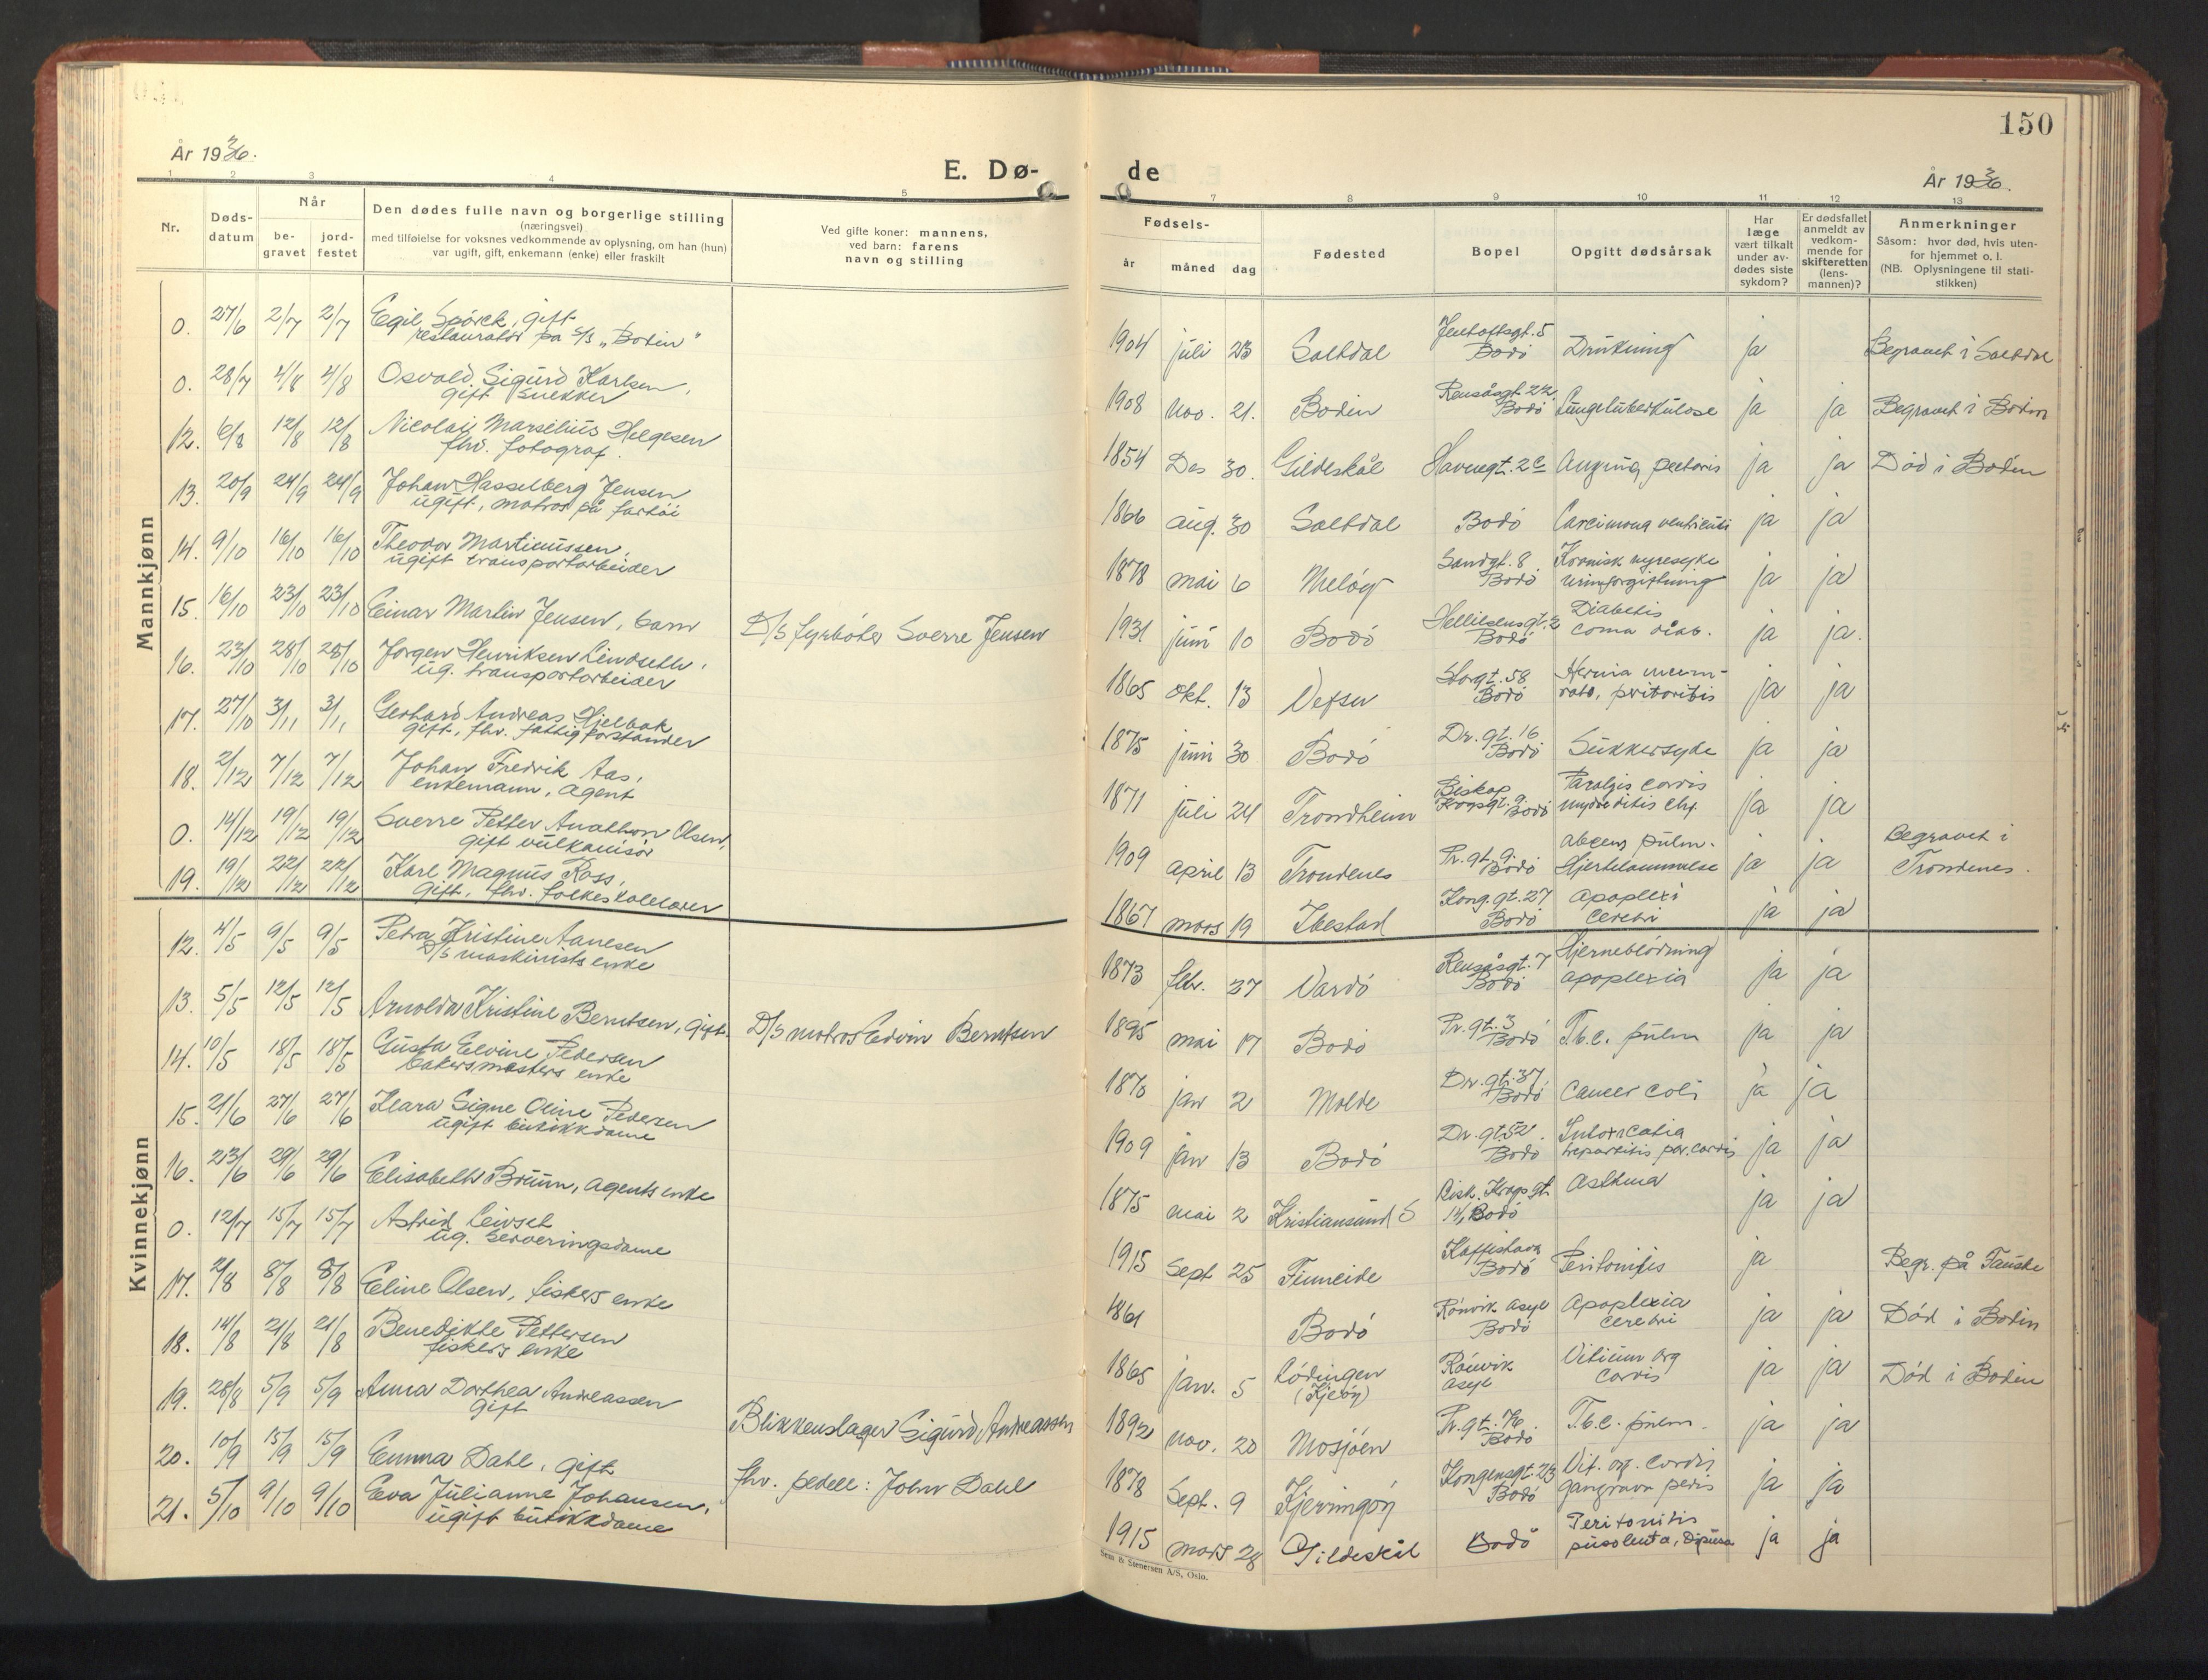 150
År 1936.
E. Dø-
de
År 1936.
1 2 3 4 5
7 8 9 10 11 12 13
Nr.
Døds-
datum
Når
be-
gravet
jord-
festet
Den dødes fulle navn og borgerlige stilling
(næringsvei)
med tilføielse for voksnes vedkommende av oplysning, om han (hun)
var ugift, gift, enkemann (enke) eller fraskilt
Ved gifte koner: mannens,
ved barn: farens
navn og stilling
Fødsels-
år
måned
dag
Fødested
Bopel
Opgitt dødsårsak
Har
læge
vært tilkalt
under av-
dødes siste
sykdom?
Er dødsfallet
anmeldt av
vedkom-
mende for
skifteretten
(lens-
mannen)?
Anmerkninger
Såsom: hvor død, hvis uten-
for hjemmet o. l.
(NB. Oplysningene til stati-
stikken)
Mannkjønn
0. 27/6 2/7 2/7 Egil Spörck, gift
restauratør på S/S „Bodin"
1904 juli 23 Saltdal Jentoftsgt. 5
Bodö Drukning ja Begravet i Saltdal
0. 28/7 4/8 4/8 Osvald Sigurd Karlsen,
gift snekker
1908 nov. 21. Bodin Rensåsgt. 22
Bodö Lungetuberkulose ja ja Begravet i Bodin
12. 6/8 12/8 12/8 Nicolai Marselius Helgesen
fhv. fotograf.
1854 Des 30. Gildeskål Havnegt. 2c Angina pectoris ja ja Död i Bodin
13. 20/9 24/9 24/9 Johan Hasselberg Jensen
ugift, matros på fartöi
1866 aug. 30 Saltdal Bodö Carcinoma ventriculi ja ja
14. 9/10 16/10 16/10 Theodor Martinussen,
ugift transportarbeider
1878 mai 6 Melöy Sandgt. 8
Bodö Kronisk nyresyke
urinforgiftning ja ja
15. 16/10 23/10 23/10 Einar Martin Jensen, barn D/S fyrböter Sverre Jensen
1931 juni 10 Bodö Hellilsensgt. 2
Bodö Diabetis
coma diab. ja ja.
16. 23/10 28/10 28/10 Jorgen Henriksen Lindseth,
ug. transportarbeider
1865 okt. 13 Vefsn Storgt. 58
Bodö Hernia ja ja
17. 27/10 3/11 3/11 Gerhard Andreas Hjelbak
gift, fhv. fattigforstander
1875 juni 30 Bodö Dr. gt. 16
Bodö Sukkersyke ja ja
18. 2/12 7/12 7/12 Johan Fredrik Aas,
enkemann, agent
1871 juli 24 Trondheim Biskop
Krogsgt. 9. Bodö Paralysis cordis ja ja
0. 14/12 19/12 19/12 Sverre Petter Anathon Olsen,
gift vulkanisör
1909 april 13 Trondenes Pr. gt. 9.
Bodö absens pulm.
Hjertelammelse ja ja Begravet i
Trondenes.
19. 19/12 22/12 22/12 Karl Magnus Ross,
gift, fhv. folkeskolelærer
1867 mars 19 Ibestad Kong. gt. 27
Bodö apoplexi
cerebri ja ja
Kvinnekjønn
12. 4/5 9/5 9/5 Petra Kristine Aanesen
D/S maskinists enke
1873 febr. 27 Vardö Rensåsgt. 7
Bodö Hjerneblödning
apoplexia ja ja
13. 5/5 12/5 12/5 Arnolda Kristine Berntsen, gift. D/S matros Edvin Berntsen
1895 mai 17 Bodö Pr. gt. 3
Bodö T.b.c. pulm ja ja
14. 10/5 18/5 18/5 Gusta Elvine Pedersen
bakermesters enke
1870 jan 2 Molde Dr. gt. 37
Bodö Cancer coli ja ja
15. 21/6 27/6 27/6 Klara Signe Oline Pedersen
ugift butikkdame
1909 jan 13 Bodö Dr. gt 52.
Bodö Intoxicatia
par. cordis ja ja
16. 23/6 29/6 29/6 Elisabeth Bruun, agents enke
1875 mai 2 Kristiansund S Bisk. Krogsgt
14, Bodö Asthma ja ja
0. 12/7 15/7 15/7 Astrid Leivset
ug. Serveringsdame
1915 Sept 25 Finneide Kaffistova
Bodö Peritonitis ja Begr. på Fauske
17. 2/8 8/8 8/8 Eline Olsen, fiskers enke
1861 Bodö Rönvik asyl
Bodö Apoplexia
cerebri ja ja Död i Bodin
18. 14/8 21/8 21/8 Benedikte Pettersen
fiskers enke
1865 jan. 5 Lödingen
(Kjeöy) Rönvik
asyl Vitium org
cordis ja ja Död i Bodin
19. 28/8 5/9 5/9 Anna Dorthea Andreassen
gift Blikkenslager Sigurd Andreassen
1892 nov. 20 Mosjöen Pr. gt. 76.
Bodö T.b.c. pulm. ja ja
20. 10/9 15/9 15/9 Emma Dahl, gift fhv. pedell: John Dahl
1878 Sept. 9 Kjerringöy Kongensgt. 23
Bodö Vit. org. cordis
gangræna pedis ja ja
21. 5/10 9/10 9/10 Eva Julianne Johansen,
ugift butikkdame
1915 mars 28 Gildeskål Bodö Peritonitis ja ja
Sem & Stenersen A/S, Oslo.